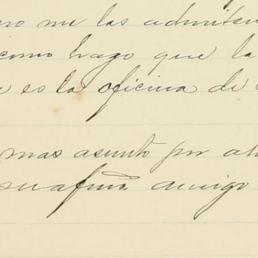 no me las admiten
como hago que la
es la oficina de
mas asunto por a
su afmo amigo